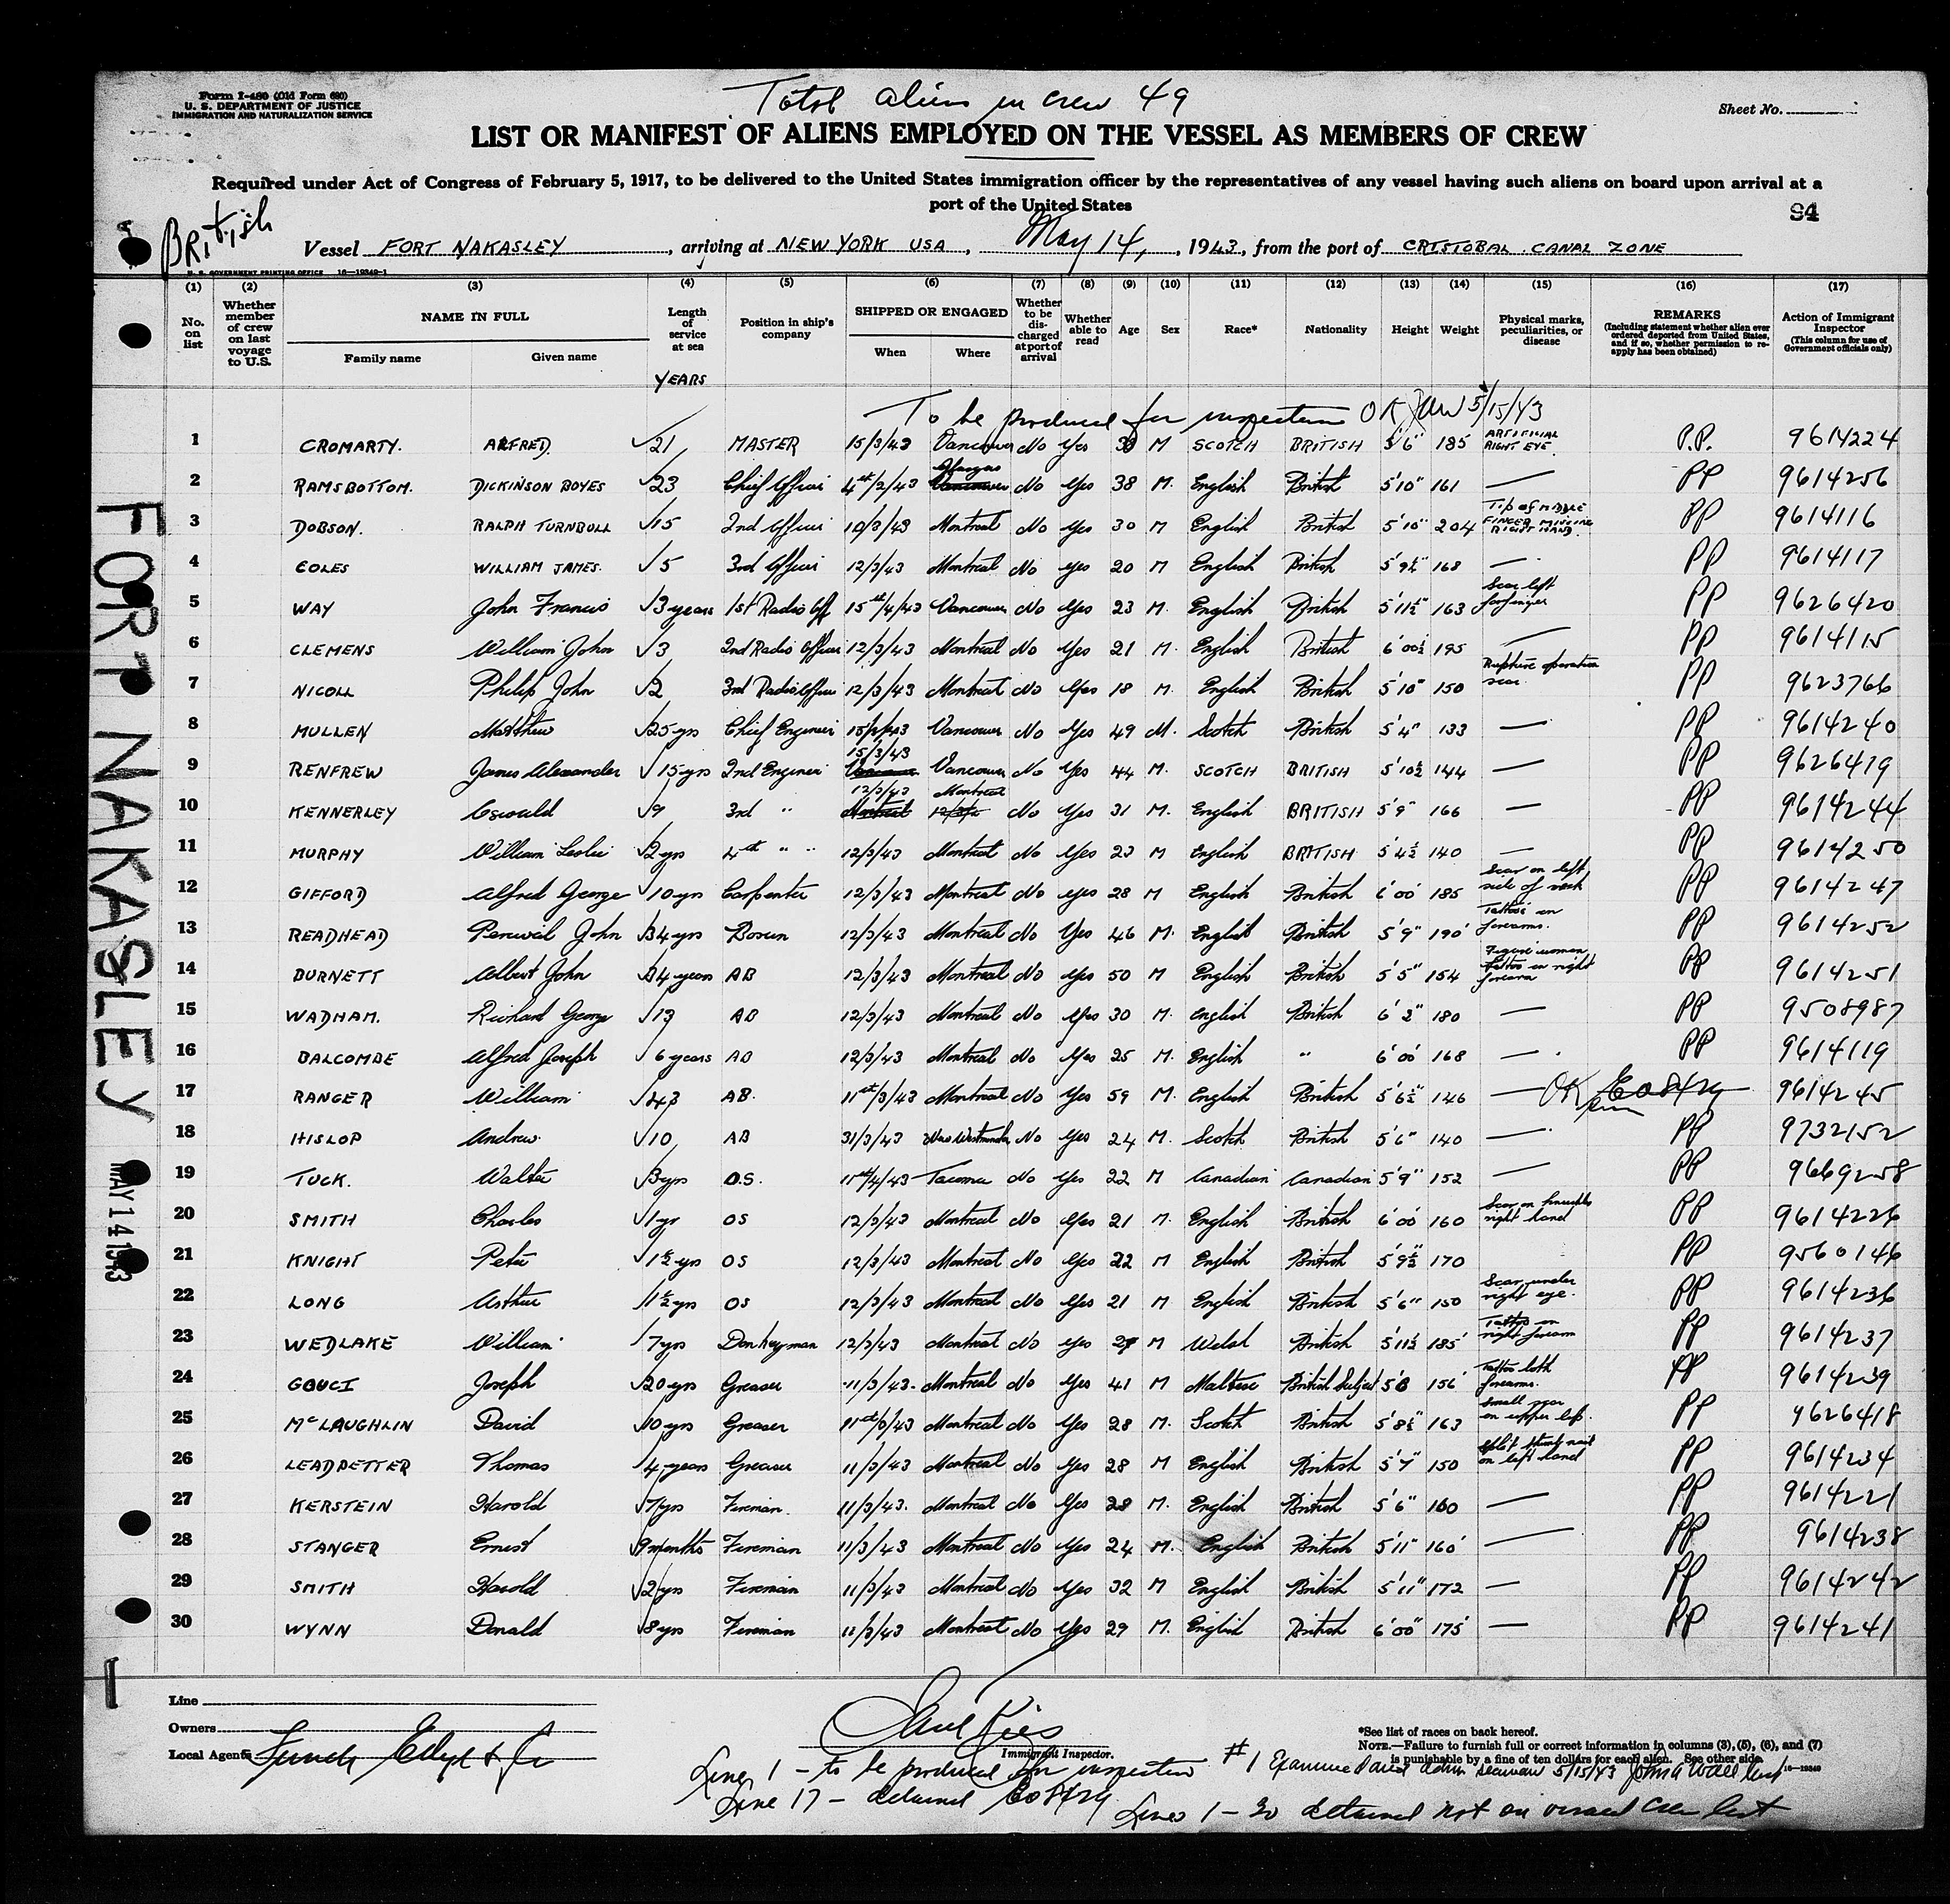 Form I-480 (Old Form 680)
U. S. DEPARTMENT OF JUSTICE
IMMIGRATION AND NATURALIZATION SERVICE
Total aliens in crew 49
Sheet No.
LIST OR MANIFEST OF ALIENS EMPLOYED ON THE VESSEL AS MEMBERS OF CREW
Required under Act of Congress of February 5, 1917, to be delivered to the United States immigration officer by the representatives of any vessel having such aliens on board upon arrival at a
port of the United States
94
British
Vessel FORT NAKASLEY, arriving at NEW YORK USA, May 14, 1943, from the port of CRISTOBAL CANAL ZONE
U. S. GOVERNMENT PRINTING OFFICE 16—19349-1
(1) No. on list
(2) Whether member of crew on last voyage to U.S.
(3) NAME IN FULL Family name Given name
(4) Length of service at sea YEARS
(5) Position in ship's company
(6) SHIPPED OR ENGAGED When Where
(7) Whether to be discharged at port of arrival
(8) Whether able to read
(9) Age
(10) Sex
(11) Race*
(12) Nationality
(13) Height
(14) Weight
(15) Physical marks, peculiarities, or disease
(16) REMARKS (Including statement whether alien ever ordered deported from United States, and if so, whether permission to re-apply has been obtained)
(17) Action of Immigrant Inspector (This column for use of Government officials only)
To be produced for inspection OK 5/15/43
1 CROMARTY. ALFRED. 21 MASTER 15/3/43 Vancouver No Yes M SCOTCH BRITISH 5'6" 185 ARTIFICIAL RIGHT EYE P.P. 9614224
2 RAMSBOTTOM. DICKINSON BOYES 23 Chief Officer 4th/2/43 Glasgow No Yes 38 M. English British 5'10" 161 — PP 9614256
3 DOBSON. RALPH TURNBULL 15 2nd Officer 10/3/43 Montreal No Yes 30 M English British 5'10" 204 Tip of MIDDLE FINGER MISSING RIGHT HAND. PP 9614116
4 COLES WILLIAM JAMES. 5 3rd Officer 12/3/43 Montreal No Yes 20 M English British 5'9½" 168 — PP 9614117
5 WAY John Francis 3 years 1st Radio Off 15th/4/43 Vancouver No Yes 23 M. English British 5'11½" 163 Scar left forefinger PP 9626420
6 CLEMENS William John 3 2nd Radio Officer 12/3/43 Montreal No Yes 21 M. English British 6'00½ 195 — PP 9614115
7 NICOLL Philip John 2 3rd Radio Officer 12/3/43 Montreal No Yes 18 M. English British 5'10" 150 Rupture operation scar. PP 9623766
8 MULLEN Matthew 25 yrs Chief Engineer Vancouver No Yes 49 M. Scotch British 5'4" 133 — PP 9614240
9 RENFREW James Alexander 15 yrs 2nd Engineer 15/3/43 Vancouver No Yes 44 M. SCOTCH BRITISH 5'10½ 144 — PP 9626419
10 KENNERLEY Oswald 9 3rd " 12/3/43 Montreal No Yes 31 M. English BRITISH 5'9" 166 — PP 9614244
11 MURPHY William Leslie 2 yrs 4th " " 12/3/43 Montreal No Yes 23 M English BRITISH 5'4½ 140 — PP 9614250
12 GIFFORD Alfred George 10 yrs Carpenter 12/3/43 Montreal No Yes 28 M English British 6'00" 185 Scar on left side of neck PP 9614247
13 READHEAD Percival John 34 yrs Bosun 12/3/43 Montreal No Yes 46 M. English British 5'9" 190 Tattoos on forearms. PP 9614252
14 BURNETT Albert John 34 years AB 12/3/43 Montreal No Yes 50 M English British 5'5" 154 Figure woman tattoo on right forearm PP 9614251
15 WADHAM. Richard George 13 AB 12/3/43 Montreal No Yes 30 M. English British 6'2" 180 — PP 9508987
16 BALCOMBE Alfred Joseph 6 years AB 12/3/43 Montreal No Yes 25 M. English " 6'00" 168 — PP 9614119
17 RANGER William 43 AB. 11th/3/43 Montreal No Yes 59 M. English British 5'6½" 146 — OK 9614245
18 HISLOP Andrew. 10 AB 31/3/43 New Westminster No Yes 24 M. Scotch British 5'6" 140 — PP 9732152
19 TUCK. Walter 3 yrs O.S. 11th/4/43 Tacoma No Yes 22 M Canadian Canadian 5'9" 152 — PP 9669258
20 SMITH Charles 1 yr OS 12/3/43 Montreal No Yes 21 M. English British 6'00" 160 Scar on knuckles right hand PP 9614226
21 KNIGHT Peter 1½ yrs OS 12/3/43 Montreal No Yes 22 M English British 5'9½" 170 PP 9560146
22 LONG Arthur 1½ yrs OS 12/3/43 Montreal No Yes 21 M English British 5'6" 150 Scar under right eye. PP 9614236
23 WEDLAKE William 7 yrs Donkeyman 12/3/43 Montreal No Yes M Welsh British 5'11½ 185 Tattoo on right forearm PP 9614237
24 GOUCI Joseph 20 yrs Greaser 11/3/43 Montreal No Yes 41 M Maltese British Subject 156 Tattoo both forearms. PP 9614239
25 McLAUGHLIN David 10 yrs Greaser 11th/3/43 Montreal No Yes 28 M. Scotch British 5'8½" 163 Small scar on upper lip. PP 9626418
26 LEADPETTER Thomas 4 years Greaser 11/3/43 Montreal No Yes 28 M English British 5'7" 150 Split thumb nail on left hand PP 9614234
27 KERSTEIN Harold 7 yrs Fireman. 11/3/43. Montreal No Yes 28 M. English British 5'6" 160 — PP 9614221
28 STANGER Ernest 9 months Fireman 11/3/43 Montreal No Yes 24 M. English British 5'11" 160 — PP 9614238
29 SMITH Harold 2 yrs Fireman 11/3/43 Montreal No Yes 32 M English British 5'11" 172 — PP 9614242
30 WYNN Donald 8 yrs Fireman 11/3/43 Montreal No Yes 29 M. English British 6'00" 175 — PP 9614241
FORT NAKASLEY
MAY 14 1943
Line
Owners
Local Agents Funch Edye & Co
Immigrant Inspector.
*See list of races on back hereof.
NOTE.—Failure to furnish full or correct information in columns (3), (5), (6), and (7)
is punishable by a fine of ten dollars for each alien. See other side.
16—19349
Line 1 – to be produced for inspection
#1 Examined and adm. seaman 5/15/43
Line 17 – detained
Lines 1–30 detained not on vessel crew list